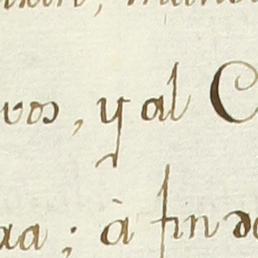 vos, y al C
aa; à fin de